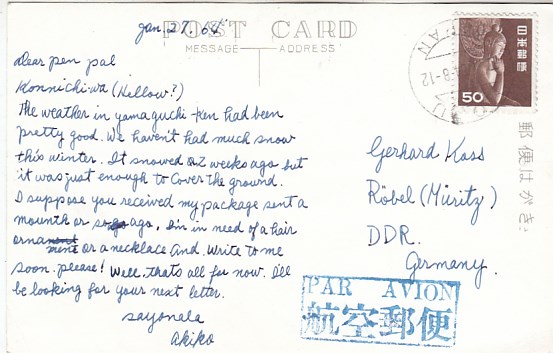 Jan 27. 64
POST CARD
MESSAGE ADDRESS
Dear pen pal
Konnichi-wa (Hellow?)
The weather in yamaguchi-ken had been
pretty good. We haven't had much snow
this winter. It snowed 2 weeks ago but
it was just enough to cover the ground.
I suppose you received my package sent a
mounth or so ago, I'm in need of a hair
ornament or a necklace and. Write to me
soon. please! Well, thats all for now. I'll
be looking for your next letter.
sayonala
akiko
日本郵便
50
PAN
郵便はがき
Gerhard Kass
Röbel (Müritz)
DDR.
Germany.
PAR AVION
航空郵便